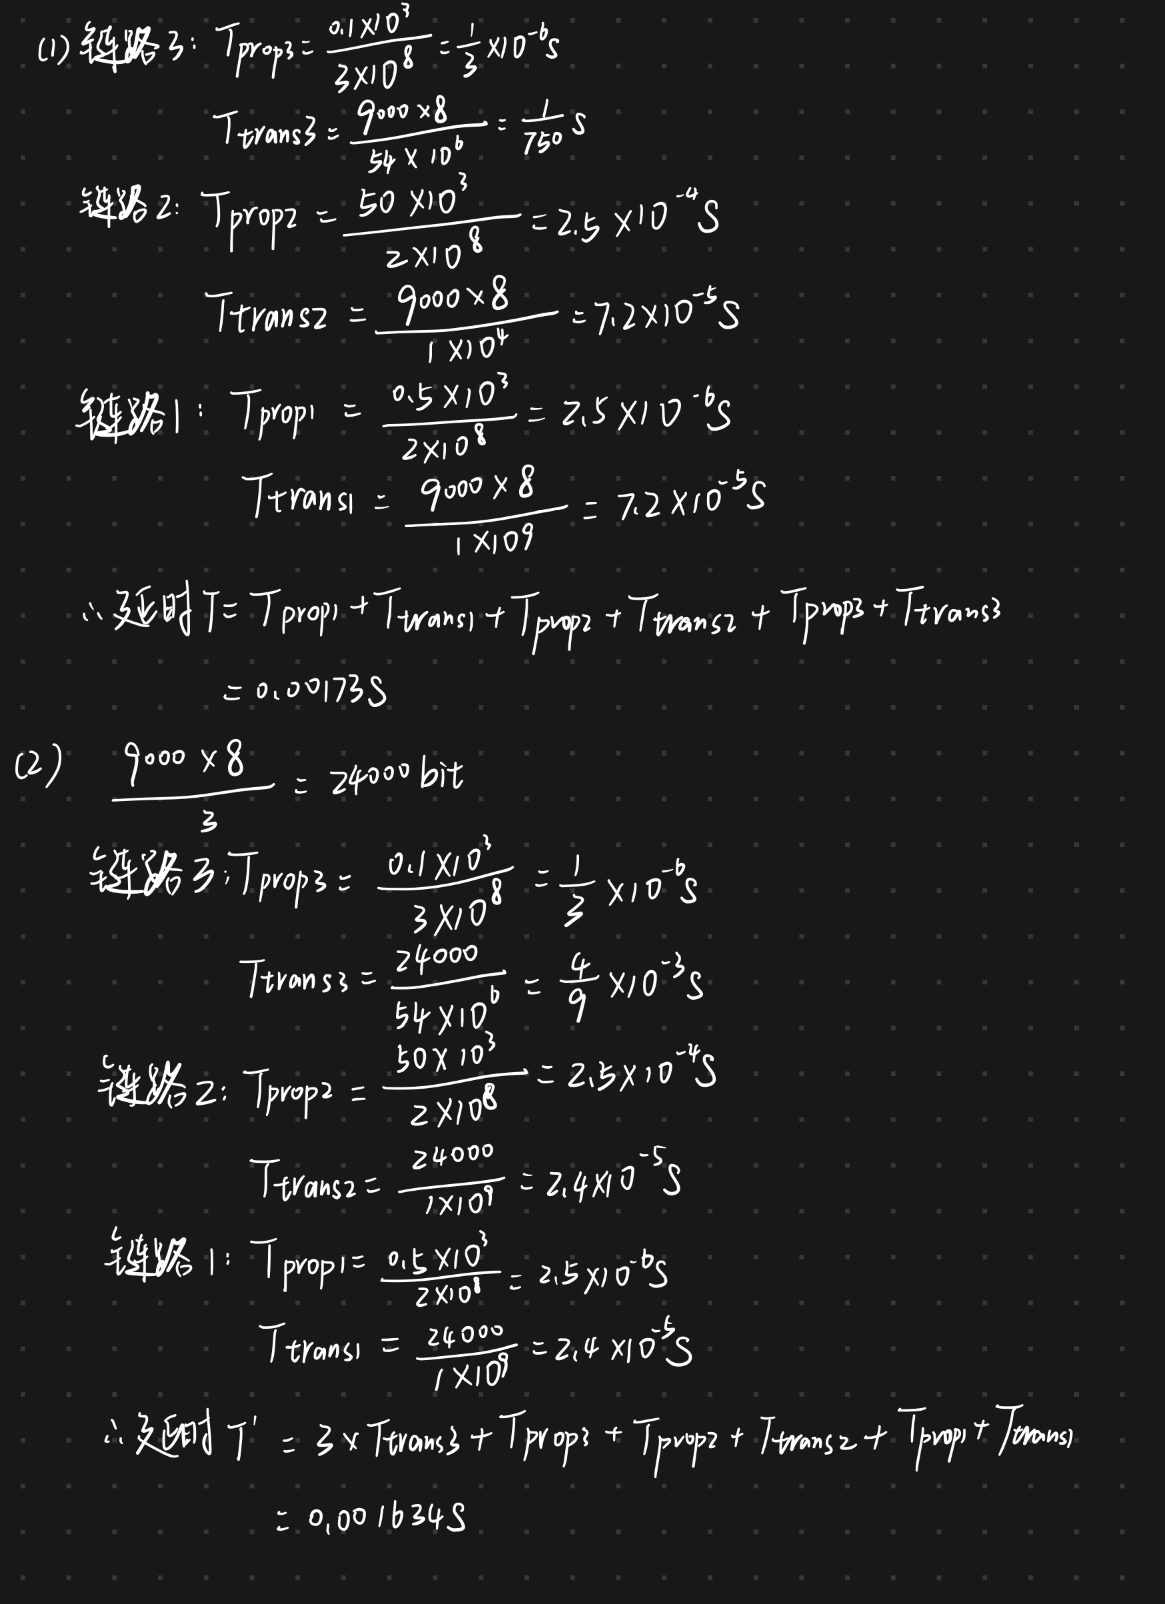 (1) 链路3: Tprop3 = 0.1×10³ / 3×10⁸ = 1/3 ×10⁻⁶s
Ttrans3 = 9000×8 / 54×10⁶ = 1/750 s
链路2: Tprop2 = 50×10³ / 2×10⁸ = 2.5×10⁻⁴s
Ttrans2 = 9000×8 / 1×10⁴ = 7.2×10⁻⁵s
链路1: Tprop1 = 0.5×10³ / 2×10⁸ = 2.5×10⁻⁶s
Ttrans1 = 9000×8 / 1×10⁹ = 7.2×10⁻⁵s
∴延时T = Tprop1 + Ttrans1 + Tprop2 + Ttrans2 + Tprop3 + Ttrans3
= 0.00173s
(2) 9000×8 / 3 = 24000 bit
链路3: Tprop3 = 0.1×10³ / 3×10⁸ = 1/3 ×10⁻⁶s
Ttrans3 = 24000 / 54×10⁶ = 4/9 ×10⁻³s
链路2: Tprop2 = 50×10³ / 2×10⁸ = 2.5×10⁻⁴s
Ttrans2 = 24000 / 1×10⁹ = 2.4×10⁻⁵s
链路1: Tprop1 = 0.5×10³ / 2×10⁸ = 2.5×10⁻⁶s
Ttrans1 = 24000 / 1×10⁹ = 2.4×10⁻⁵s
∴延时T' = 3×Ttrans3 + Tprop3 + Tprop2 + Ttrans2 + Tprop1 + Ttrans1
= 0.001634s